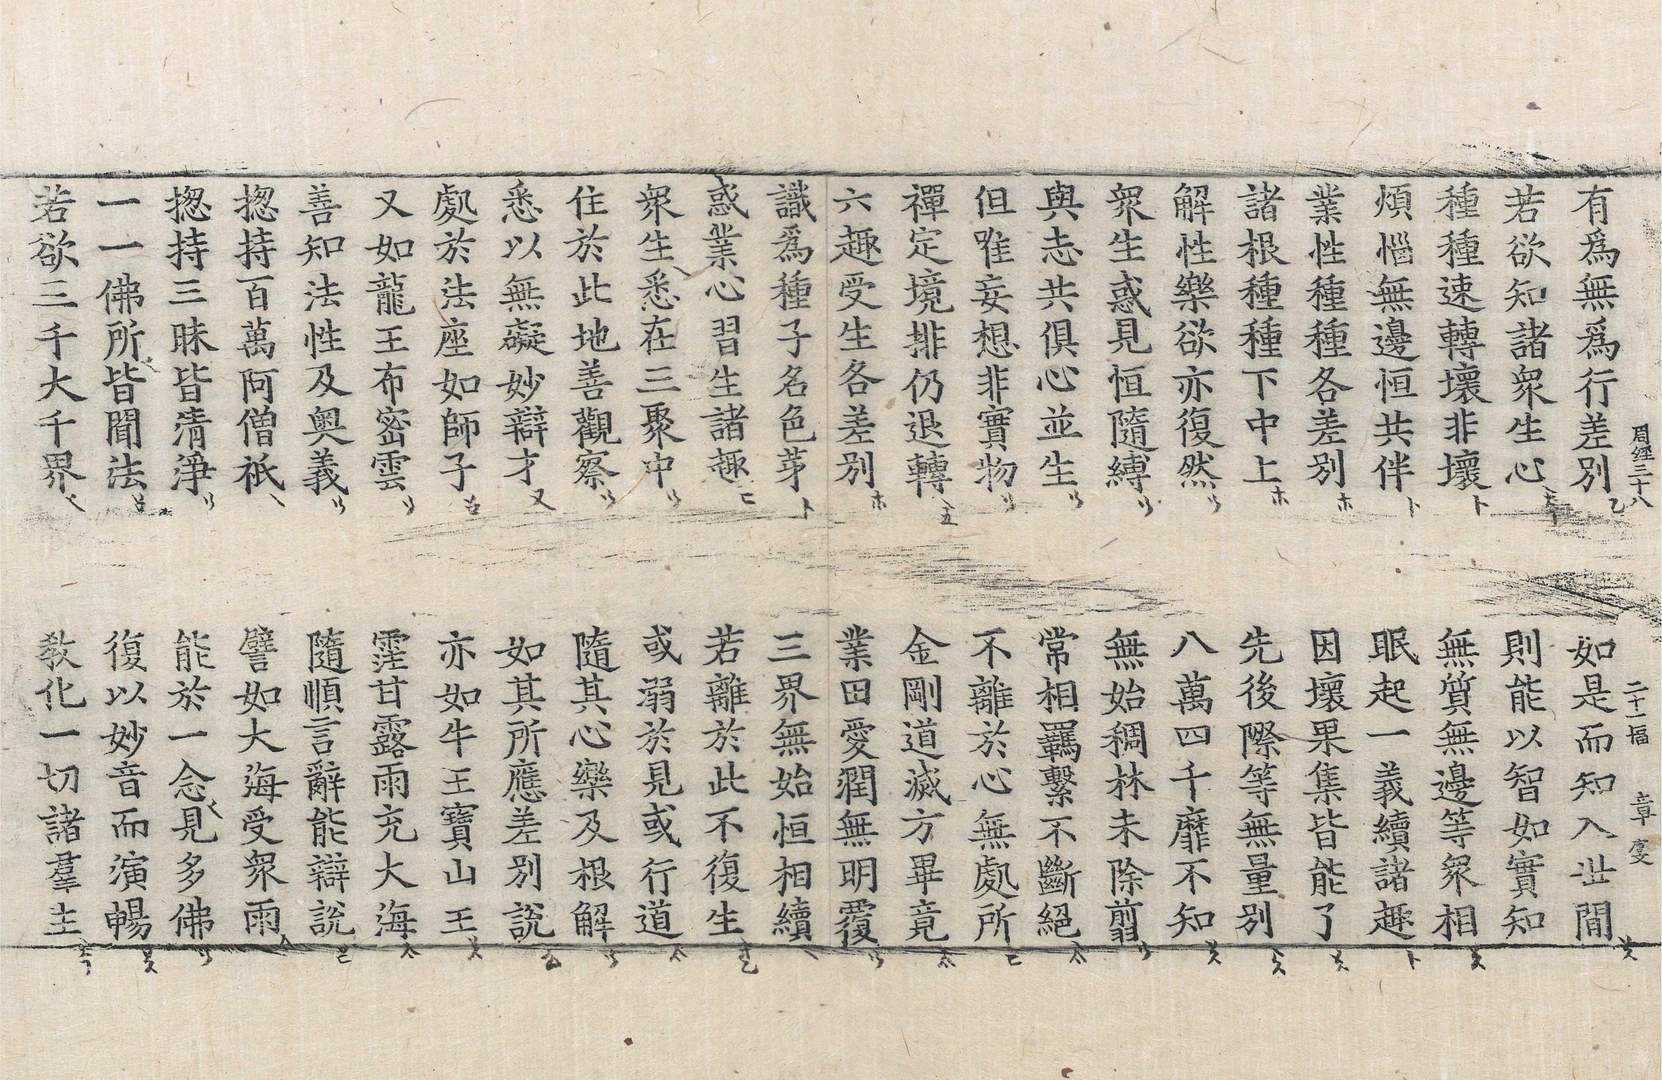 周經三十八 二十一幅
有爲無爲行差別 如是而知入世間
若欲知諸衆生心 則能以智如實知
種種速轉壞非壞 無質無邊等衆相
煩惱無邊恒共伴 眠起一義續諸趣
業性種種各差別 因壞果集皆能了
諸根種種下中上 先後際等無量別
解性樂欲亦復然 八萬四千靡不知
衆生惑見恒隨縛 無始稠林未除翦
與志共俱心並生 常相羈繫不斷絕
但唯妄想非實物 不離於心無處所
禪定境排仍退轉 金剛道滅方畢竟
六趣受生各差別 業田愛潤無明覆
識爲種子名色芽 三界無始恒相續
惑業心習生諸趣 若離於此不復生
衆生悉在三聚中 或溺於見或行道
住於此地善觀察 隨其心樂及根解
悉以無礙妙辯才 如其所應差別說
處於法座如師子 亦如牛王寶山王
又如龍王布密雲 霔甘露雨充大海
善知法性及奧義 隨順言辭能辯說
揔持百萬阿僧祇 譬如大海受衆雨
揔持三昧皆清淨 能於一念見多佛
一一佛所皆聞法 復以妙音而演暢
若欲三千大千界 敎化一切諸羣生